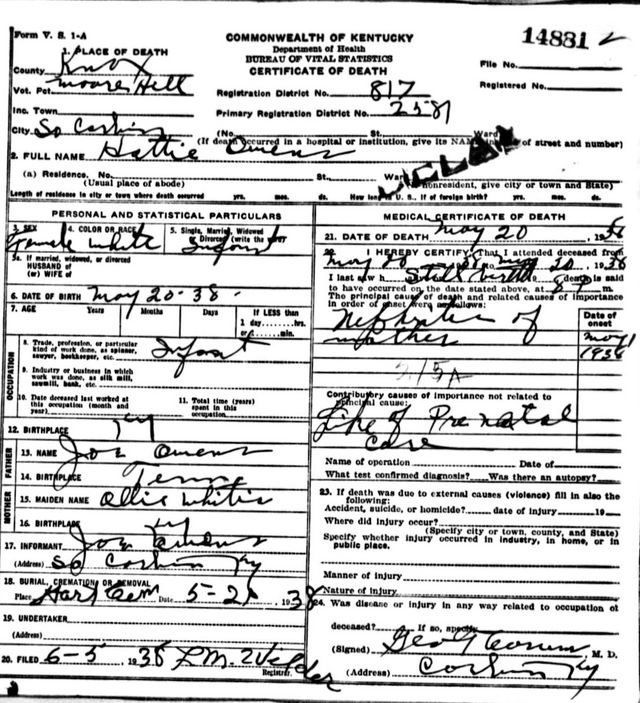 Form V. S. 1-A
COMMONWEALTH OF KENTUCKY
Department of Health
BUREAU OF VITAL STATISTICS
CERTIFICATE OF DEATH
14881
1. PLACE OF DEATH
County Knox
File No.
Vot. Pct. Moore Hill
Registration District No. 817
Registered No.
Inc. Town
Primary Registration District No. 2581
City So Corbin (No. St. Ward)
(If death occurred in a hospital or institution, give its NAME of street and number)
2. FULL NAME Hattie Owens
(a) Residence. No. St. Ward
(Usual place of abode) nonresident, give city or town and State)
Length of residence in city or town where death occurred yrs. mos. ds. How long in U. S., if of foreign birth? yrs. mos. ds.
PERSONAL AND STATISTICAL PARTICULARS
3. SEX 4. COLOR OR RACE 5. Single, Married, Widowed
Divorced (write the word)
Female White Infant
5a. If married, widowed, or divorced
HUSBAND of
(or) WIFE of
6. DATE OF BIRTH May 20-38-
7. AGE Years Months Days If LESS than
1 day,......hrs.
or......min.
OCCUPATION
8. Trade, profession, or particular
kind of work done, as spinner,
sawyer, bookkeeper, etc. Infant
9. Industry or business in which
work was done, as silk mill,
sawmill, bank, etc.
10. Date deceased last worked at
this occupation (month and
year)
11. Total time (years)
spent in this
occupation
12. BIRTHPLACE Ky
FATHER
13. NAME Joe Owens
14. BIRTHPLACE Tenn
MOTHER
15. MAIDEN NAME Ollie Whitis
16. BIRTHPLACE Ky
17. INFORMANT Joe Owens
(Address) So Corbin Ky
18. BURIAL, CREMATION OR REMOVAL
Place Hart Cem Date 5-21 1938
19. UNDERTAKER
(Address)
20. FILED 6-5 1938
Registrar.
MEDICAL CERTIFICATE OF DEATH
21. DATE OF DEATH May 20 1938
22. I HEREBY CERTIFY, That I attended deceased from
May 20 1938 to May 20 1938
I last saw h Still birth 19 death is said
to have occurred on the date stated above, at m.
The principal cause of death and related causes of importance
in order of onset were as follows:
Date of
onset
Nephritis of
mother
May 1
1938
Contributory causes of importance not related to
principal cause:
of Pre natal
Care
Name of operation Date of
What test confirmed diagnosis? Was there an autopsy?
23. If death was due to external causes (violence) fill in also the
following:
Accident, suicide, or homicide? date of injury 19
Where did injury occur?
(Specify city or town, county, and State)
Specify whether injury occurred in industry, in home, or in
public place.
Manner of injury
Nature of injury
24. Was disease or injury in any way related to occupation of
deceased? If so, specify
(Signed) M. D.
(Address) Corbin Ky